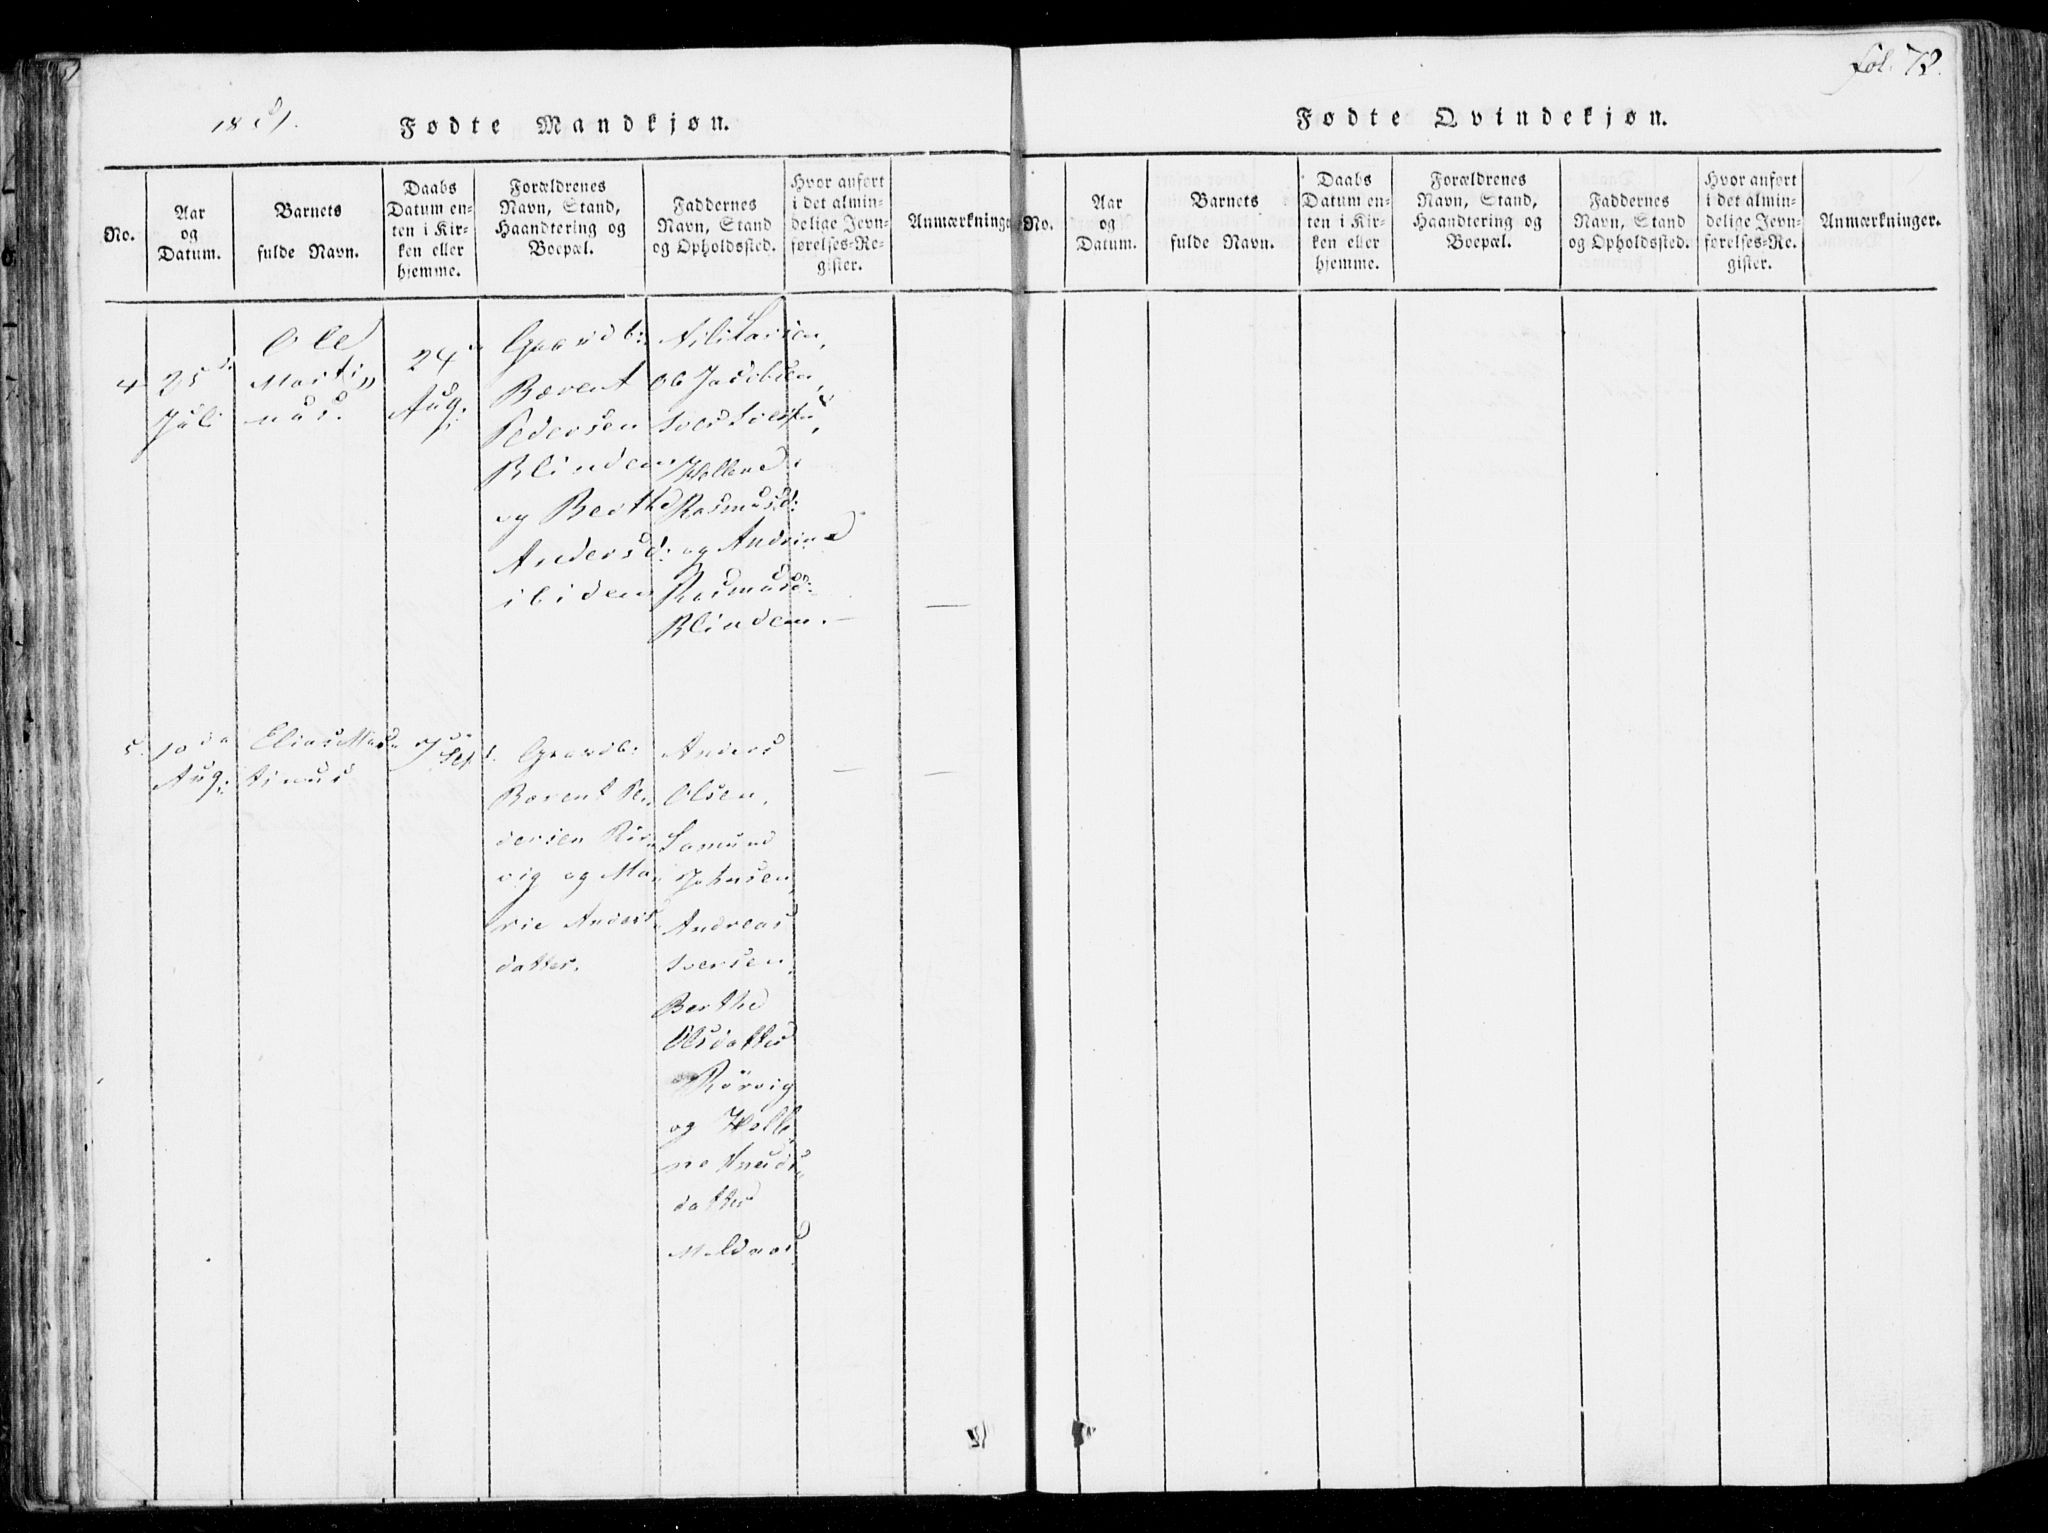 fol. 72.
18
Fødte Mandkjøn.
No.
Aar
og
Datum.
Barnets
fulde Navn.
Daabs
Datum en-
ten i Kir-
ken eller
hjemme.
Forældrenes
Navn, Stand,
Haandtering og
Boepæl.
Faddernes
Navn, Stand
og Opholdssted.
Hvor anført
i det almin-
delige Jevn-
førelses-Re-
gister.
Anmærkninge
4
25
Juli
Ole
Marti„
nus.
24
Aug:
Gaardb:
Berent
Pedersen
Blindem
og Berthe
Andersd:
ibidem
Ole Jacobsen,
Rasmusd:
og Andrine
Rasmusd:
Blindem.
5.
10
Aug:
Elias Mar„
tinus
7
Sept
Gaardb:
Berent Pe„
dersen Rör„
vig og Ma„
rie Anders„
datter.
Anders
Olsen,
Johnsen,
Andreas
Iversen,
Berthe
Olsdatter
Rörvig
og Helle„
ne Knuds„
datter
Fødte Qvindekjøn.
No.
Aar
og
Datum.
Barnets
fulde Navn.
Daabs
Datum en-
ten i Kir-
ken eller
hjemme.
Forældrenes
Navn, Stand,
Haandtering og
Boepæl.
Faddernes
Navn, Stand
og Opholdssted.
Hvor anført
i det almin-
delige Jevn-
førelses-Re-
gister.
Anmærkninger.